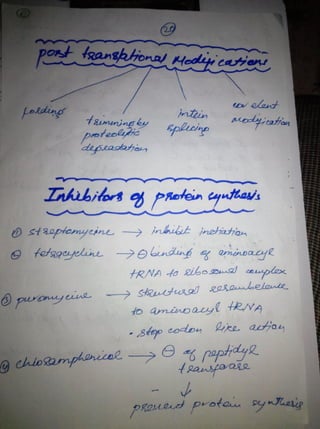 20
post translational Modifications
folding
trimming by
proteolytic
degradation
intein
splicing
covalent
modification
Inhibitors of protein synthesis
① streptomycine → inhibit initiation
② tetracycline → ⊖ binding of aminoacyl
tRNA to ribosomal complex
③ puromycine → structural resembelence
to aminoacyl tRNA
• stop codon like action
④ chloramphenicol → ⊖ of peptidyl
transferase
↓
prevent protein synthesis